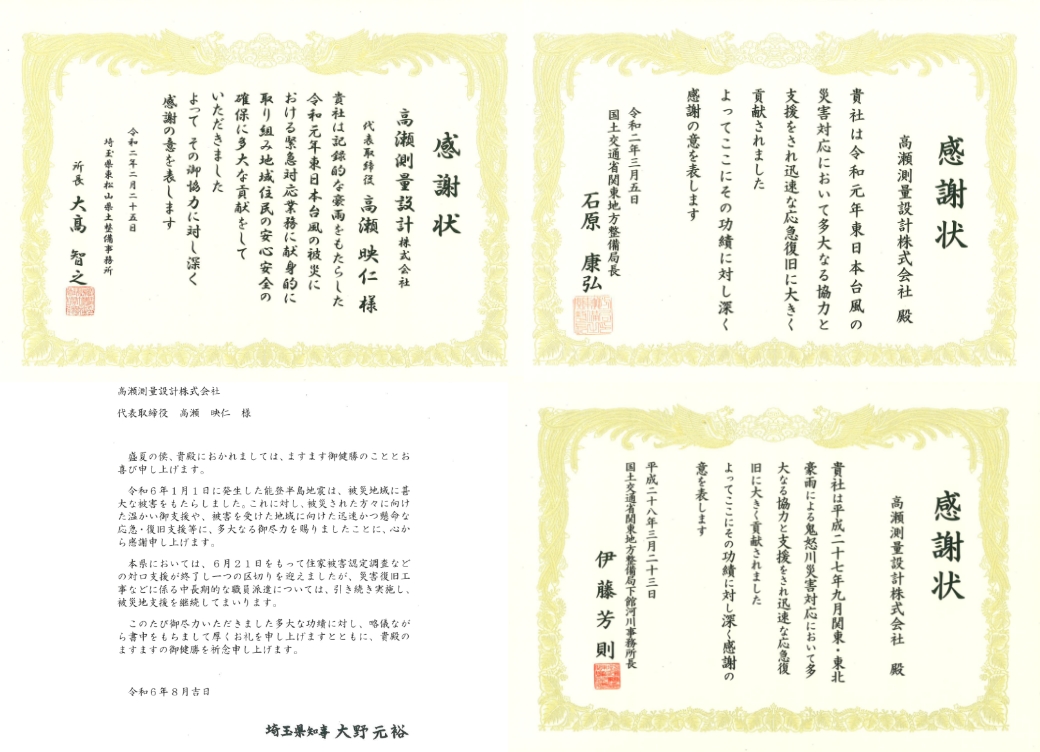 感謝状
高瀬測量設計株式会社
代表取締役 高瀬映仁 様
貴社は記録的な豪雨をもたらした
令和元年東日本台風の被災に
おける緊急対応業務に献身的に
取り組み地域住民の安心安全の
確保に多大な貢献をして
いただきました
よって その御協力に対し深く
感謝の意を表します
令和二年二月二十五日
埼玉県東松山県土整備事務所
所長 大髙 智之
感謝状
高瀬測量設計株式会社 殿
貴社は令和元年東日本台風の
災害対応において多大なる協力と
支援をされ迅速な応急復旧に大きく
貢献されました
よってここにその功績に対し深く
感謝の意を表します
令和二年三月五日
国土交通省関東地方整備局長
石原 康弘
高瀬測量設計株式会社
代表取締役 高瀬 映仁 様
盛夏の候、貴殿におかれましては、ますます御健勝のこととお
喜び申し上げます。
令和6年1月1日に発生した能登半島地震は、被災地域に甚
大な被害をもたらしました。これに対し、被災された方々に向け
た温かい御支援や、被害を受けた地域に向けた迅速かつ懸命な
応急・復旧支援等に、多大なる御尽力を賜りましたことに、心か
ら感謝申し上げます。
本県においては、6月21日をもって住家被害認定調査など
の対口支援が終了し一つの区切りを迎えましたが、災害復旧工
事などに係る中長期的な職員派遣については、引き続き実施し、
被災地支援を継続してまいります。
このたび御尽力いただきました多大な功績に対し、略儀なが
ら書中をもちまして厚くお礼を申し上げますとともに、貴殿の
ますますの御健勝を祈念申し上げます。
令和6年8月吉日
埼玉県知事 大野元裕
感謝状
高瀬測量設計株式会社 殿
貴社は平成二十七年九月関東・東北
豪雨による鬼怒川災害対応において多
大なる協力と支援をされ迅速な応急復
旧に大きく貢献されました
よってここにその功績に対し深く感謝の
意を表します
平成二十八年三月二十三日
国土交通省関東地方整備局下館河川事務所長
伊藤芳則